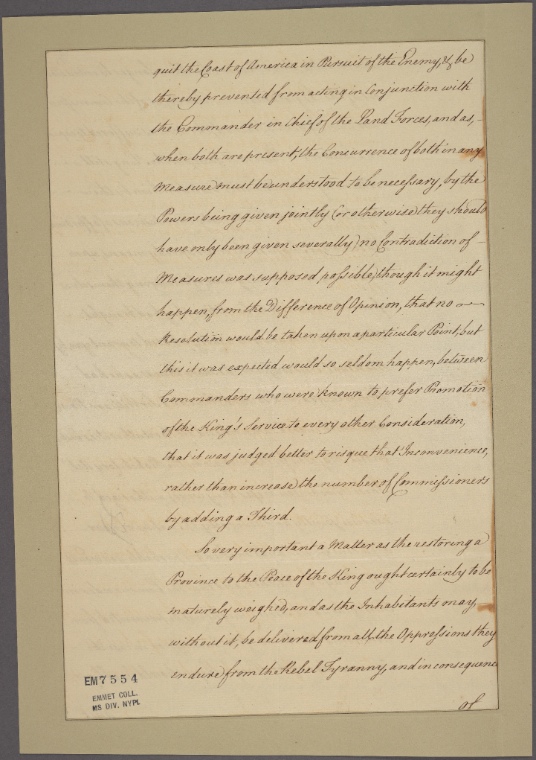 quit the Coast of America in Pursuit of the Enemy, & be
thereby prevented from acting in Conjunction with
the Commander in Chief of the Land Forces, and as,
when both are present, the Concurrence of both in any
Measure must be understood to be necessary, by the
Powers being given jointly (or otherwise they should
have only been given severally) no Contradiction of
Measures was supposed possible, though it might
happen, from the Difference of Opinion, that no
Resolution would be taken upon a particular Point, but
this it was expected would so seldom happen, between
Commanders who were known to prefer Promotion
of the King's Service to every other Consideration,
that it was judged better to risque that Inconvenience,
rather than increase the number of Commissioners
by adding a Third.
So very important a Matter as the restoring a
Province to the Peace of the King ought certainly to be
maturely weighed, and as the Inhabitants may,
without it, be delivered from all the Oppressions they
endure from the Rebel Tyranny, and in consequence
of
EM7554
EMMET COLL.
MS DIV. NYPL